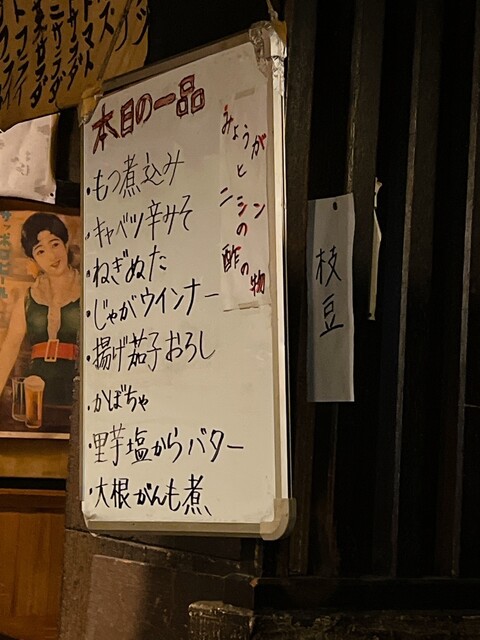 本日の一品
・もつ煮込み
・キャベツ辛みそ
・ねぎぬた
・じゃがウインナー
・揚げ茄子おろし
・かぼちゃ
・里芋塩からバター
・大根がんも煮
みょうが
と
ニシン
の
酢の物
枝豆
トマト
サッポロビール